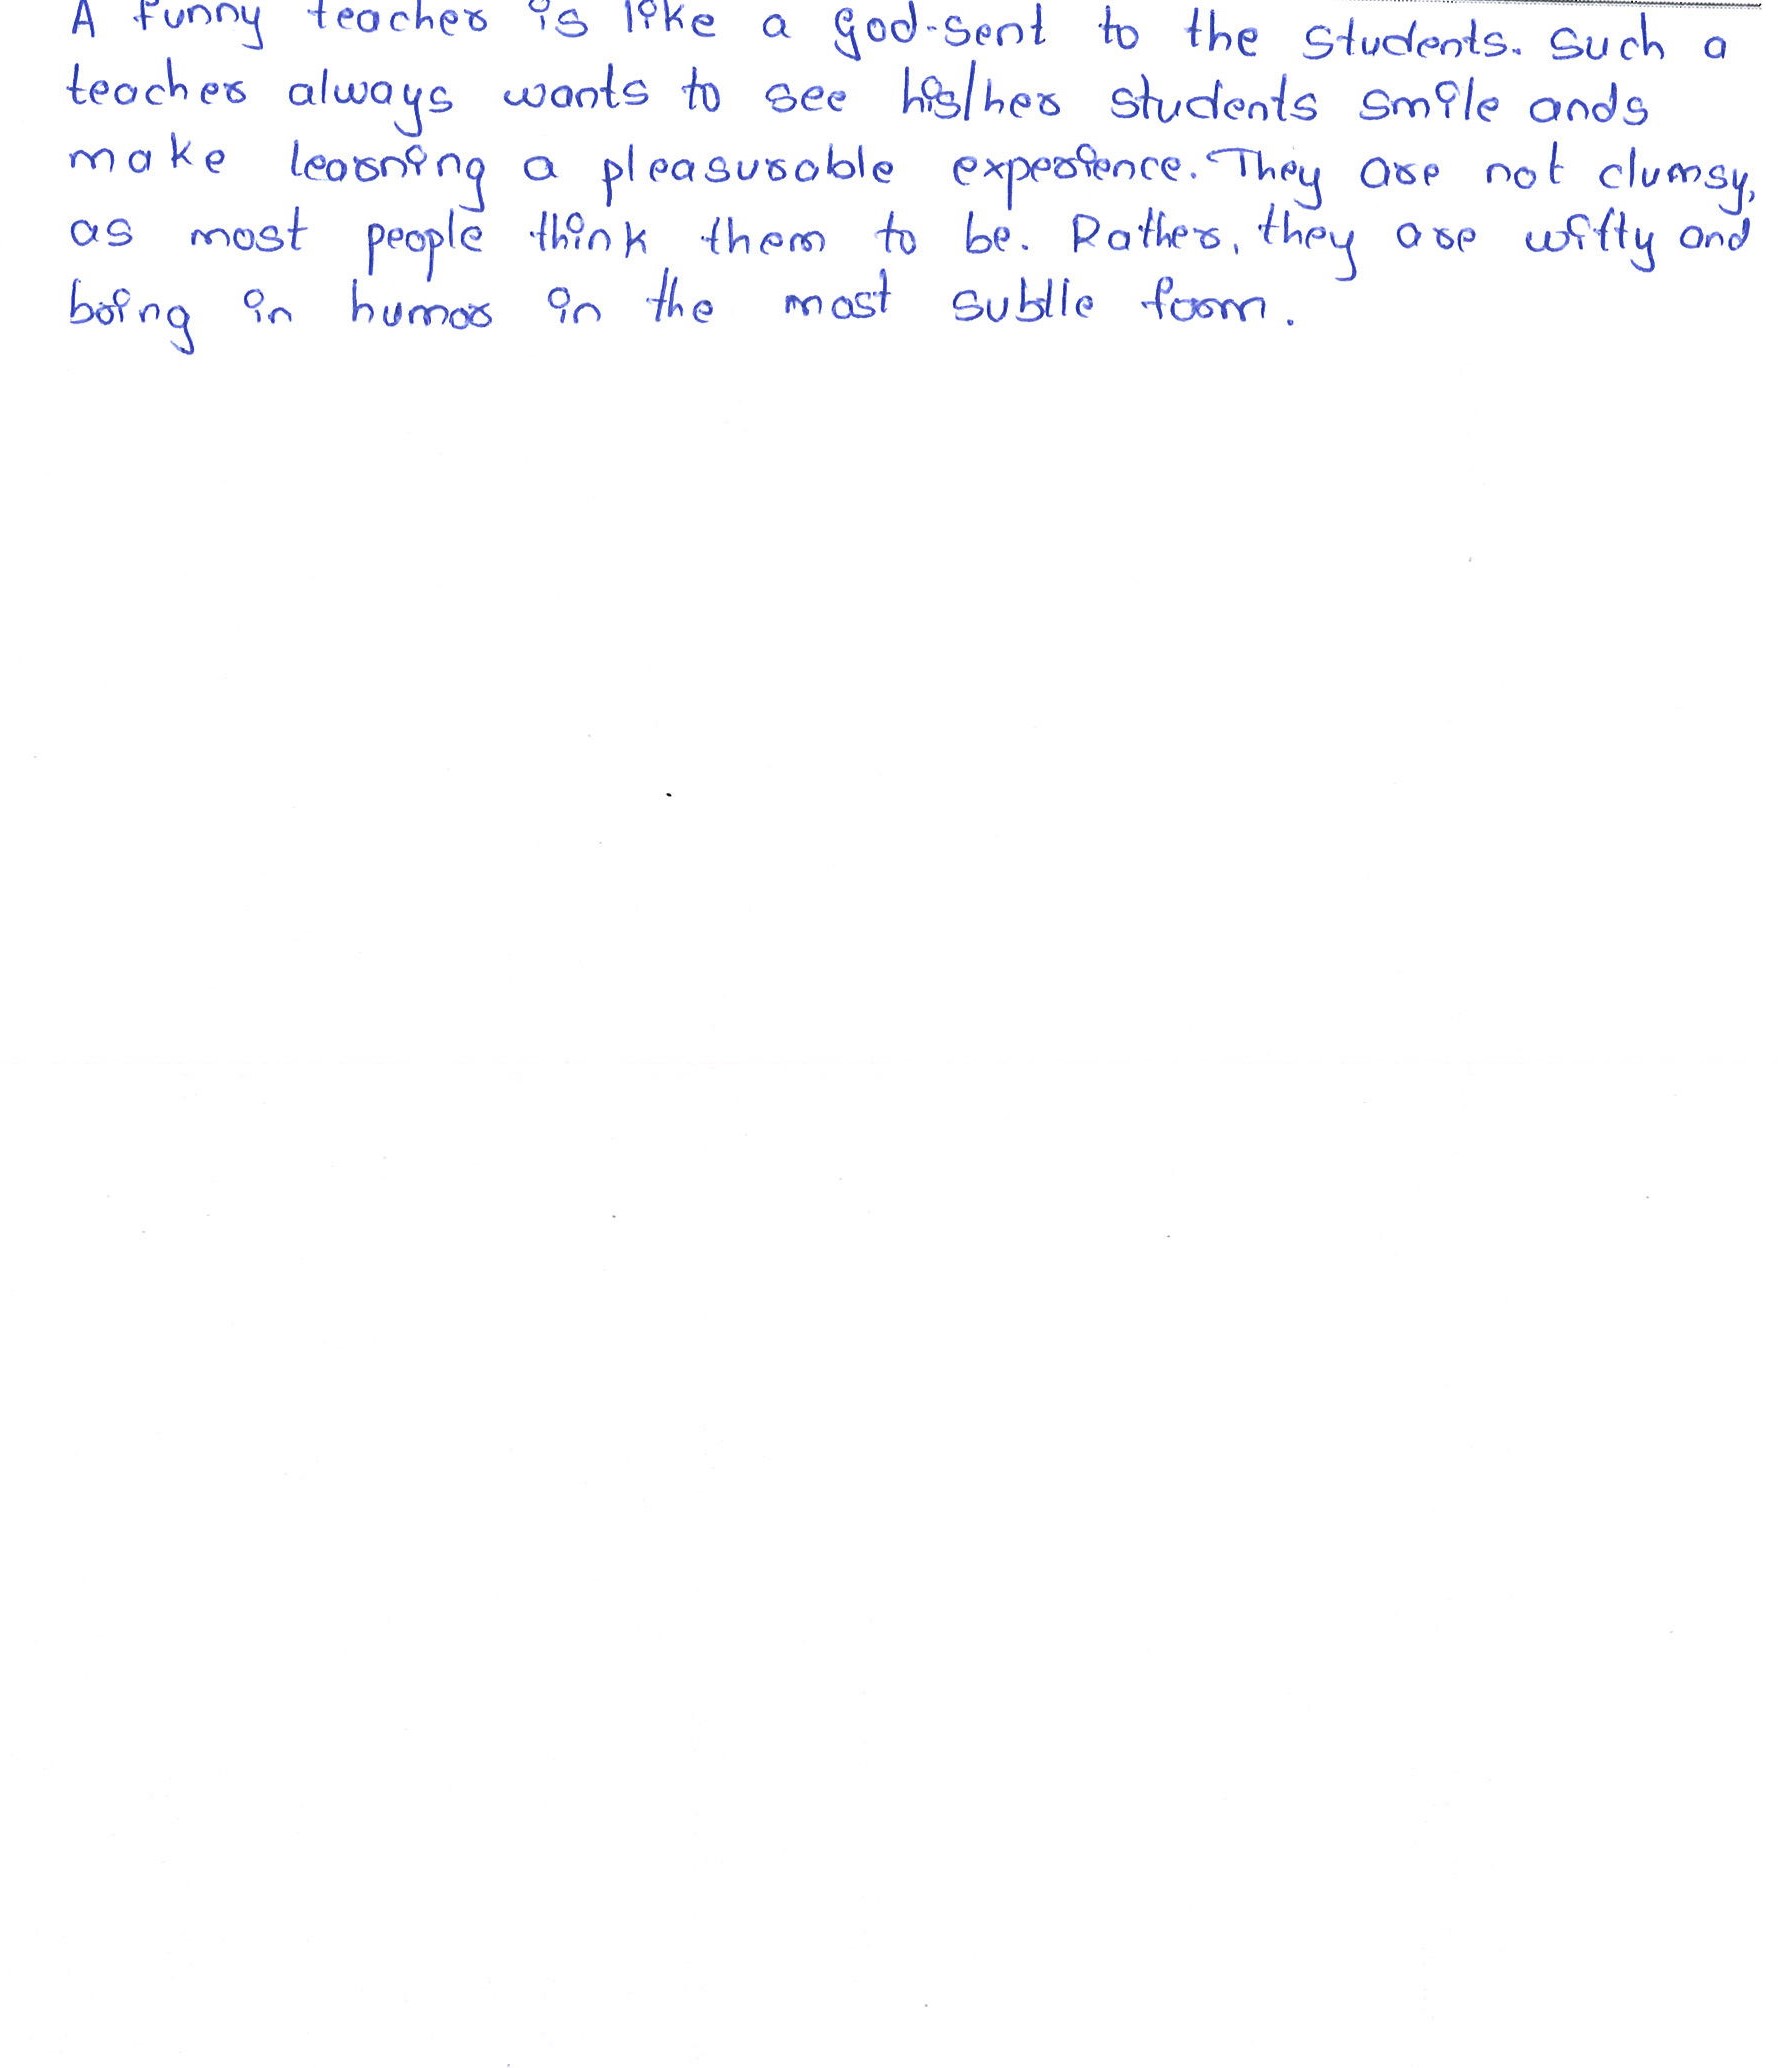 A funny teacher is like a god-sent to the students. Such a
teacher always wants to see his/her students smile ands
make learning a pleasurable experience. They are not clumsy,
as most people think them to be. Rather, they are witty and
bring in humor in the most subtle form.